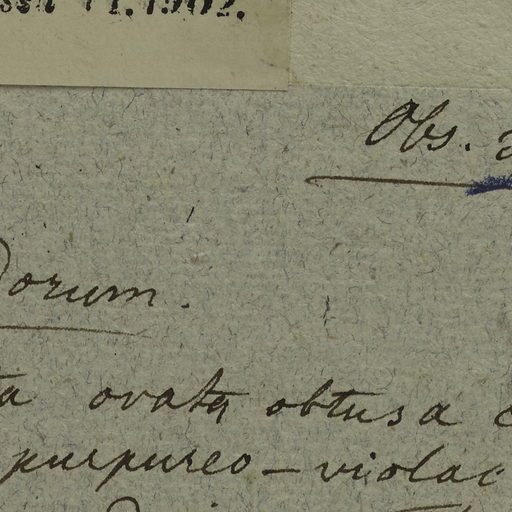 11.1902.
Obs.
orum.
ovata obtusa
purpureo-violac